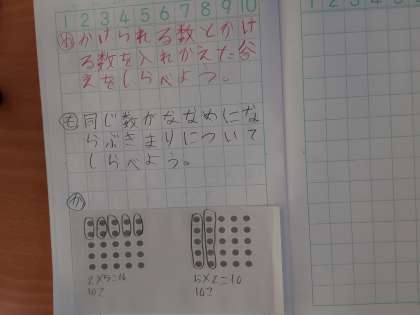 1 2 3 4 5 6 7 8 9 10
め かけられる数とかけ
る数を入れかえた答
えをしらべよう。
も 同じ数がななめにな
らぶきまりについて
しらべよう。
か
2×5=10
10こ
5×2=10
10こ
1 2 3 4